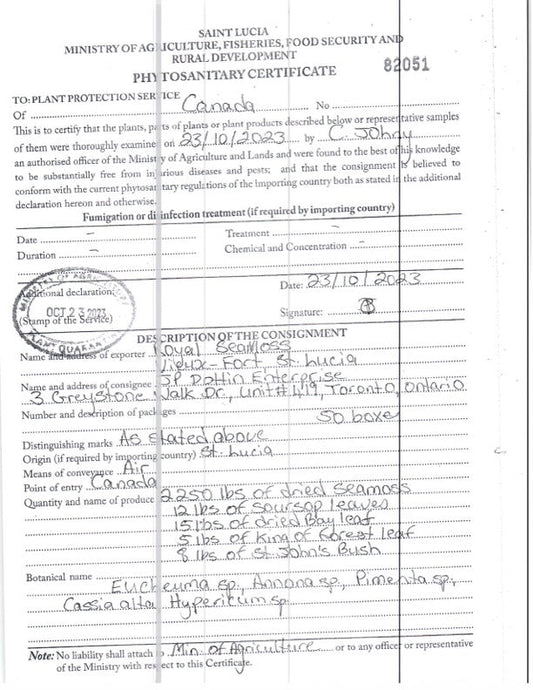 SAINT LUCIA
MINISTRY OF AGRICULTURE, FISHERIES, FOOD SECURITY AND
RURAL DEVELOPMENT
PHYTOSANITARY CERTIFICATE 82051
TO: PLANT PROTECTION SERVICE
Of Canada No
This is to certify that the plants, parts of plants or plant products described below or representative samples
of them were thoroughly examined on 23/10/2023 by C. Johny
an authorised officer of the Ministry of Agriculture and Lands and were found to the best of his knowledge
to be substantially free from injurious diseases and pests; and that the consignment is believed to
conform with the current phytosanitary regulations of the importing country both as stated in the additional
declaration hereon and otherwise.
Fumigation or disinfection treatment (if required by importing country)
Date – Treatment –
Duration – Chemical and Concentration –
Date: 23/10/2023
Additional declaration:
OCT 23 2023
Signature:
(Stamp of the Service)
PLANT QUARANTINE
DESCRIPTION OF THE CONSIGNMENT
Name and address of exporter Royal Seamoss
Vieux Fort St. Lucia
Name and address of consignee JP Dottin Enterprise
3 Greystone Walk Dr., Unit# Toronto, Ontario
Number and description of packages 50 boxe
Distinguishing marks As stated above
Origin (if required by importing country) St. Lucia
Means of conveyance Air
Point of entry Canada
Quantity and name of produce 2250 lbs of dried Seamoss
12 lbs of Soursop leaves
15 lbs of dried Bay leaf
5 lbs of King of Forest leaf
8 lbs of St. John's Bush
Botanical name
Eucheuma sp., Annona sp., Pimenta sp.,
Cassia alta, Hypericum sp
Note: No liability shall attach to Min. of Agriculture or to any officer or representative
of the Ministry with respect to this Certificate.